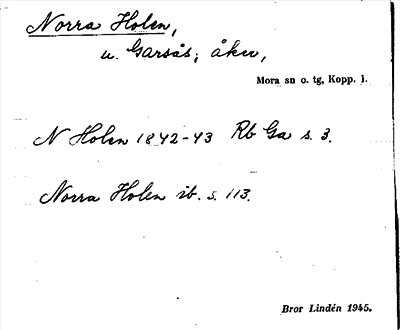 Norra Holen,
u. Garsås; åker,
Mora sn o. tg, Kopp. l.
N Holen 1842-43 Rb Ga s. 3.
Norra Holen ib. s. 113.
Bror Lindén 1945.